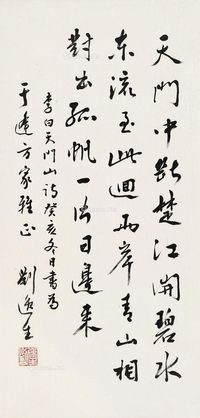 天門中斷楚江開碧水
东流至此迴兩岸青山相
對出孤帆一片日邊來
李白天門山詩癸亥冬日書為
于遠方家雅正
劉逸生